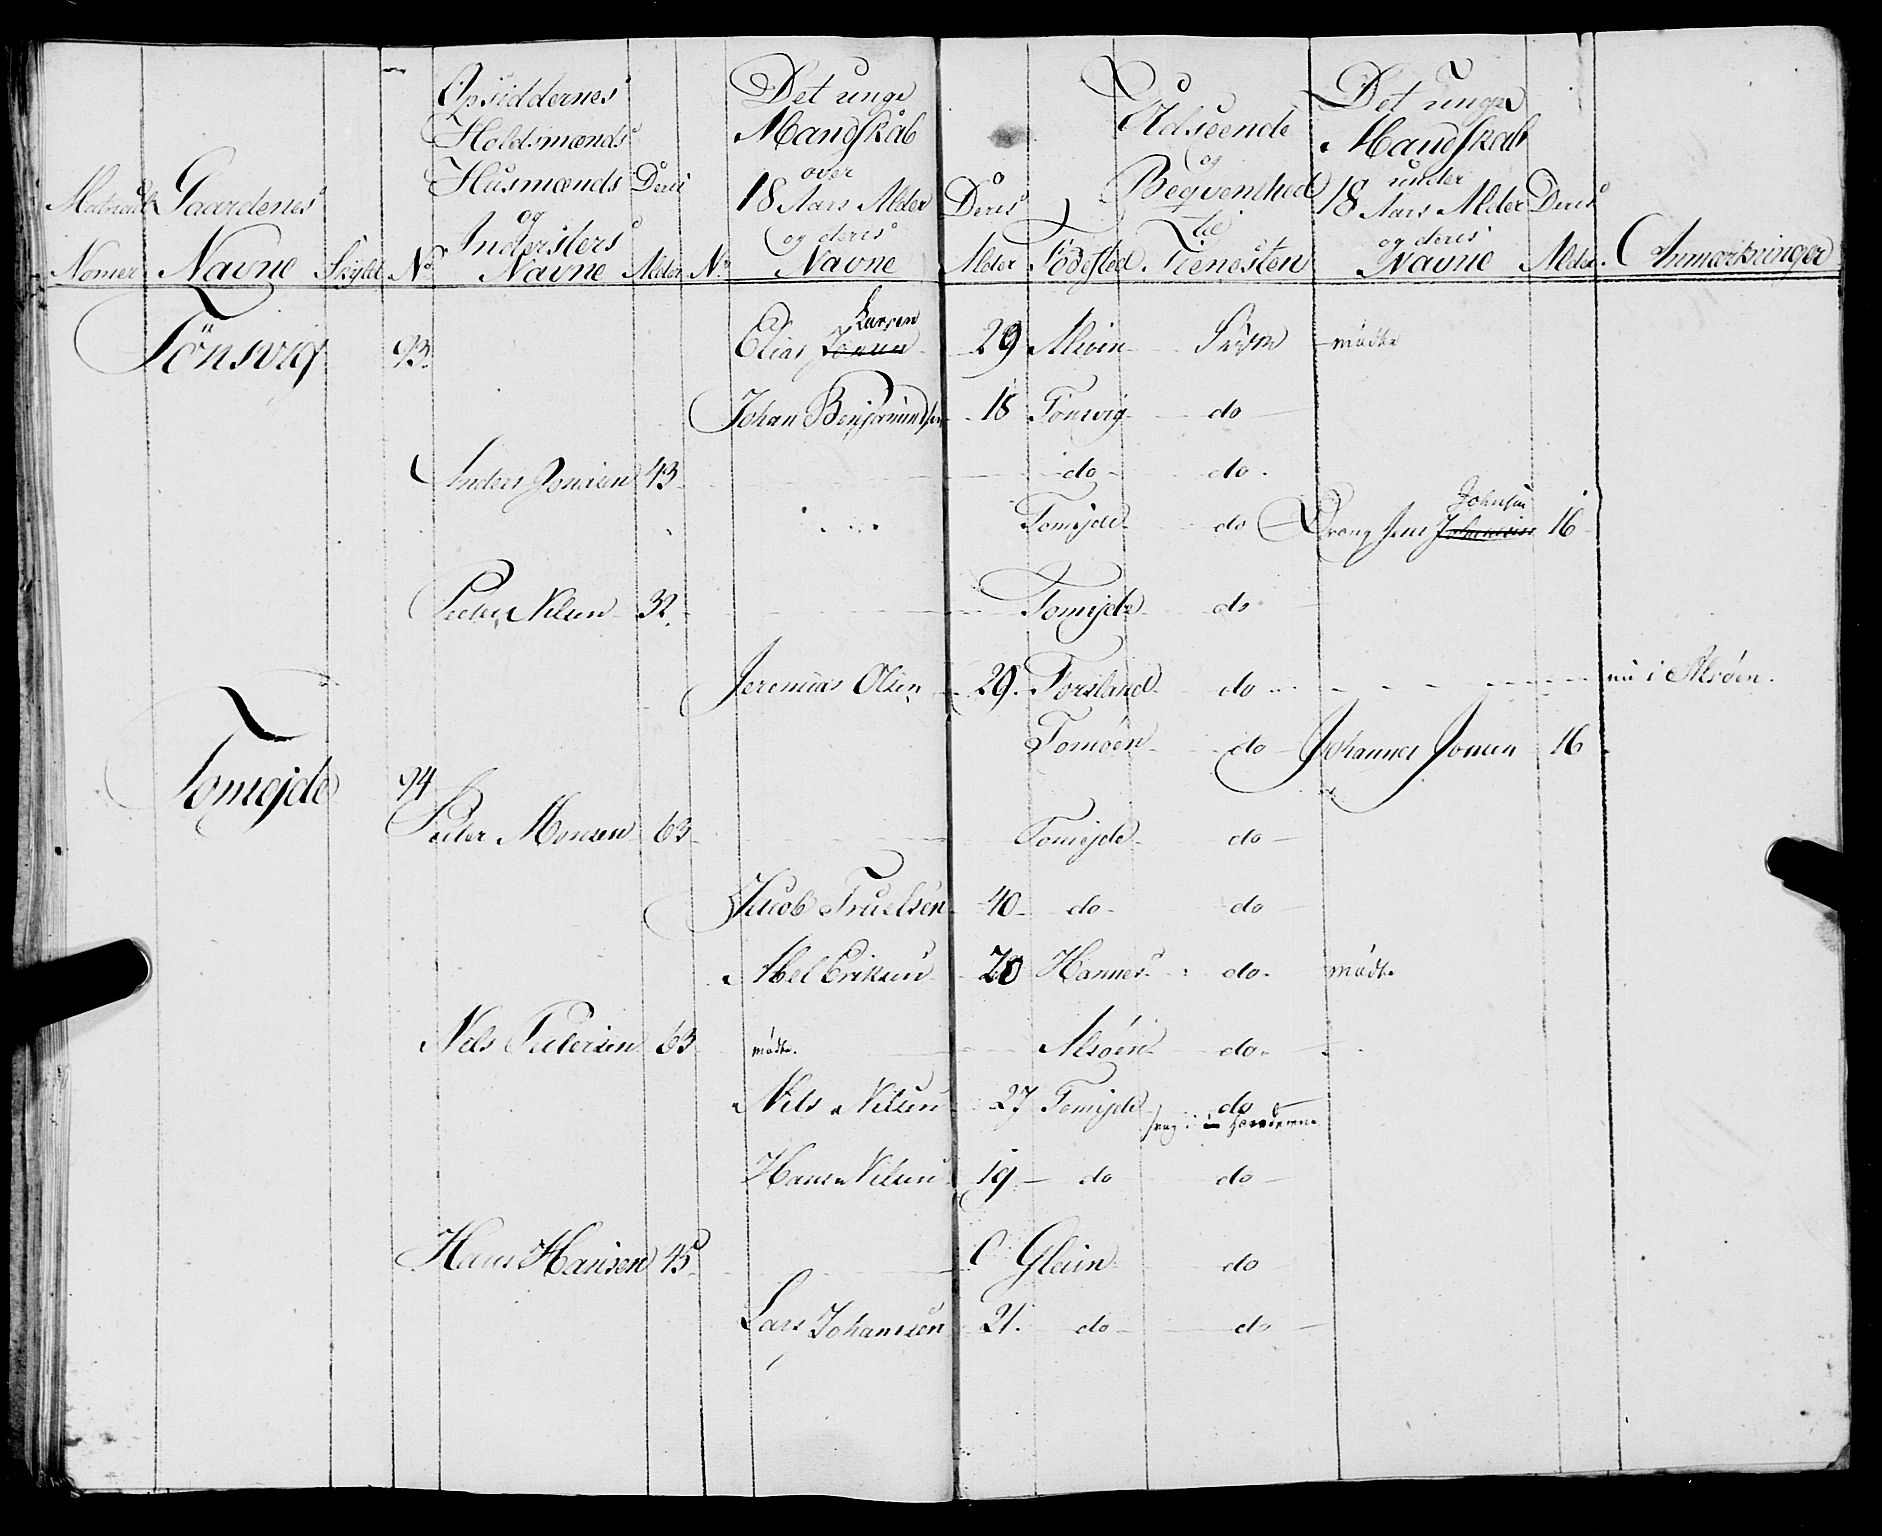 Opsiddernes Det unge Udseende Det unge
Holdsmænds Mandskab og Mandskab
Husmænds Deres over Beqvemhed under
Matricul Gaardenes og 18 Aars Alder Deres Til 18 Aars Alder Deres
Indersters og deres og deres
Nomer Navne Skyld No Navne Alder No Navne Alder Födested Tienesten Navne Alder Anmærkninger
Larsen
Tönsvig 93. Elias 29 Alvin mödte
Johan Benjaminsen 18 Tönsvig do
Anders Jonsen 43 do do
Johnsen
Tomejde do Dreng Jens 16
Peder Nilsen 32. Tomejde do
Jeremias Olsen 29. Forsland do nu i Alsöen.
Tomöen do Johannes Jonsen 16
Tomejde 94
Peder Monsen 63 Tomejde do
Jacob Truelsen 40 do do
Abel Eriksen 28 Hannes do mödte
Nils Pedersen 63 mödte. Alsöen do
Nils Nilsen 27 Tomejde do
Hans Nilsen 19 do do
Hans Hansen 45 Glein do
Lars Johansen 21. do do